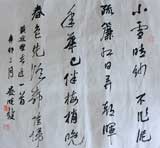 小雪晴沙不作泥
疏簾紅日弄朝暉
年華已伴梅梢晚
春色先從草際歸
辛卯三月